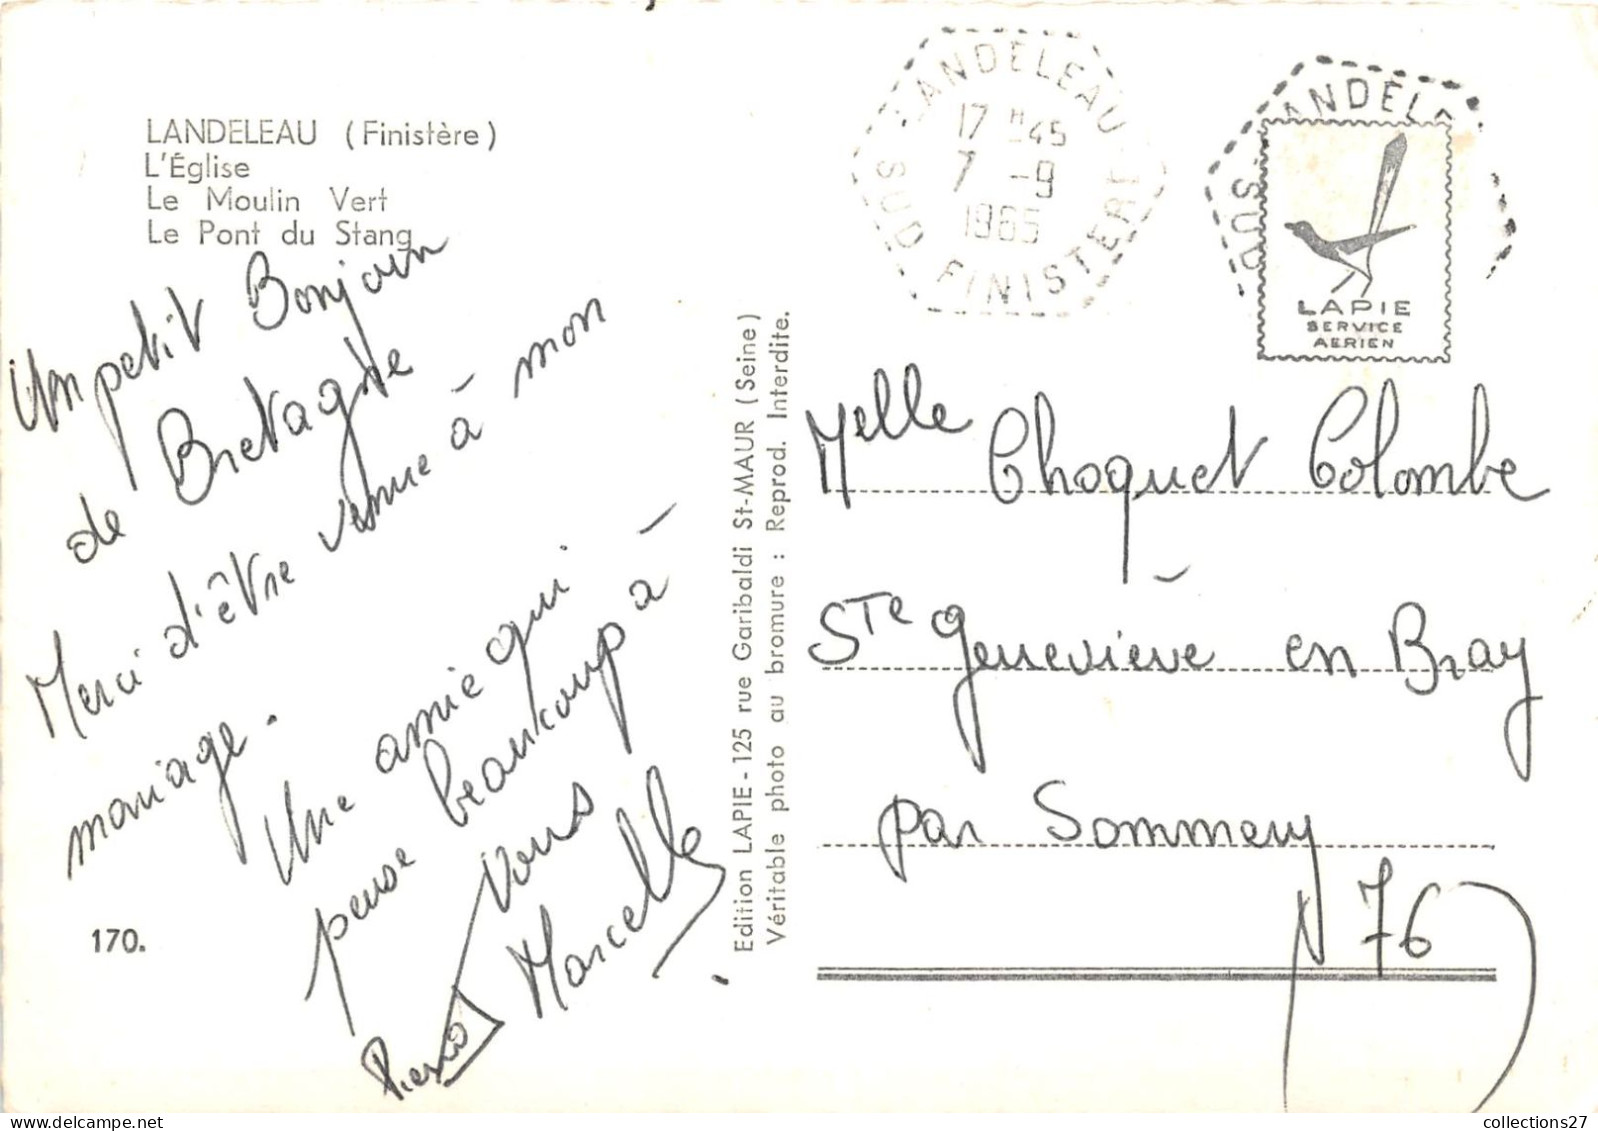 LANDELEAU (Finistère)
L'Église
Le Moulin Vert
Le Pont du Stang
Un petit Bonjour
de Bretagne
Merci d'être venue à mon
mariage.
Une amie qui
pense beaucoup à
vous
Marcelle
170.
Edition LAPIE - 125 rue Garibaldi St-MAUR (Seine)
Véritable photo au bromure : Reprod. Interdite.
LANDELEAU
17 H 45
7 - 9
1965
SUD FINISTERE
ANDELE
SUD
LAPIE
SERVICE
AERIEN
Melle Choquet Colombe
Ste Geneviève en Bray
par Sommery
76
collections27